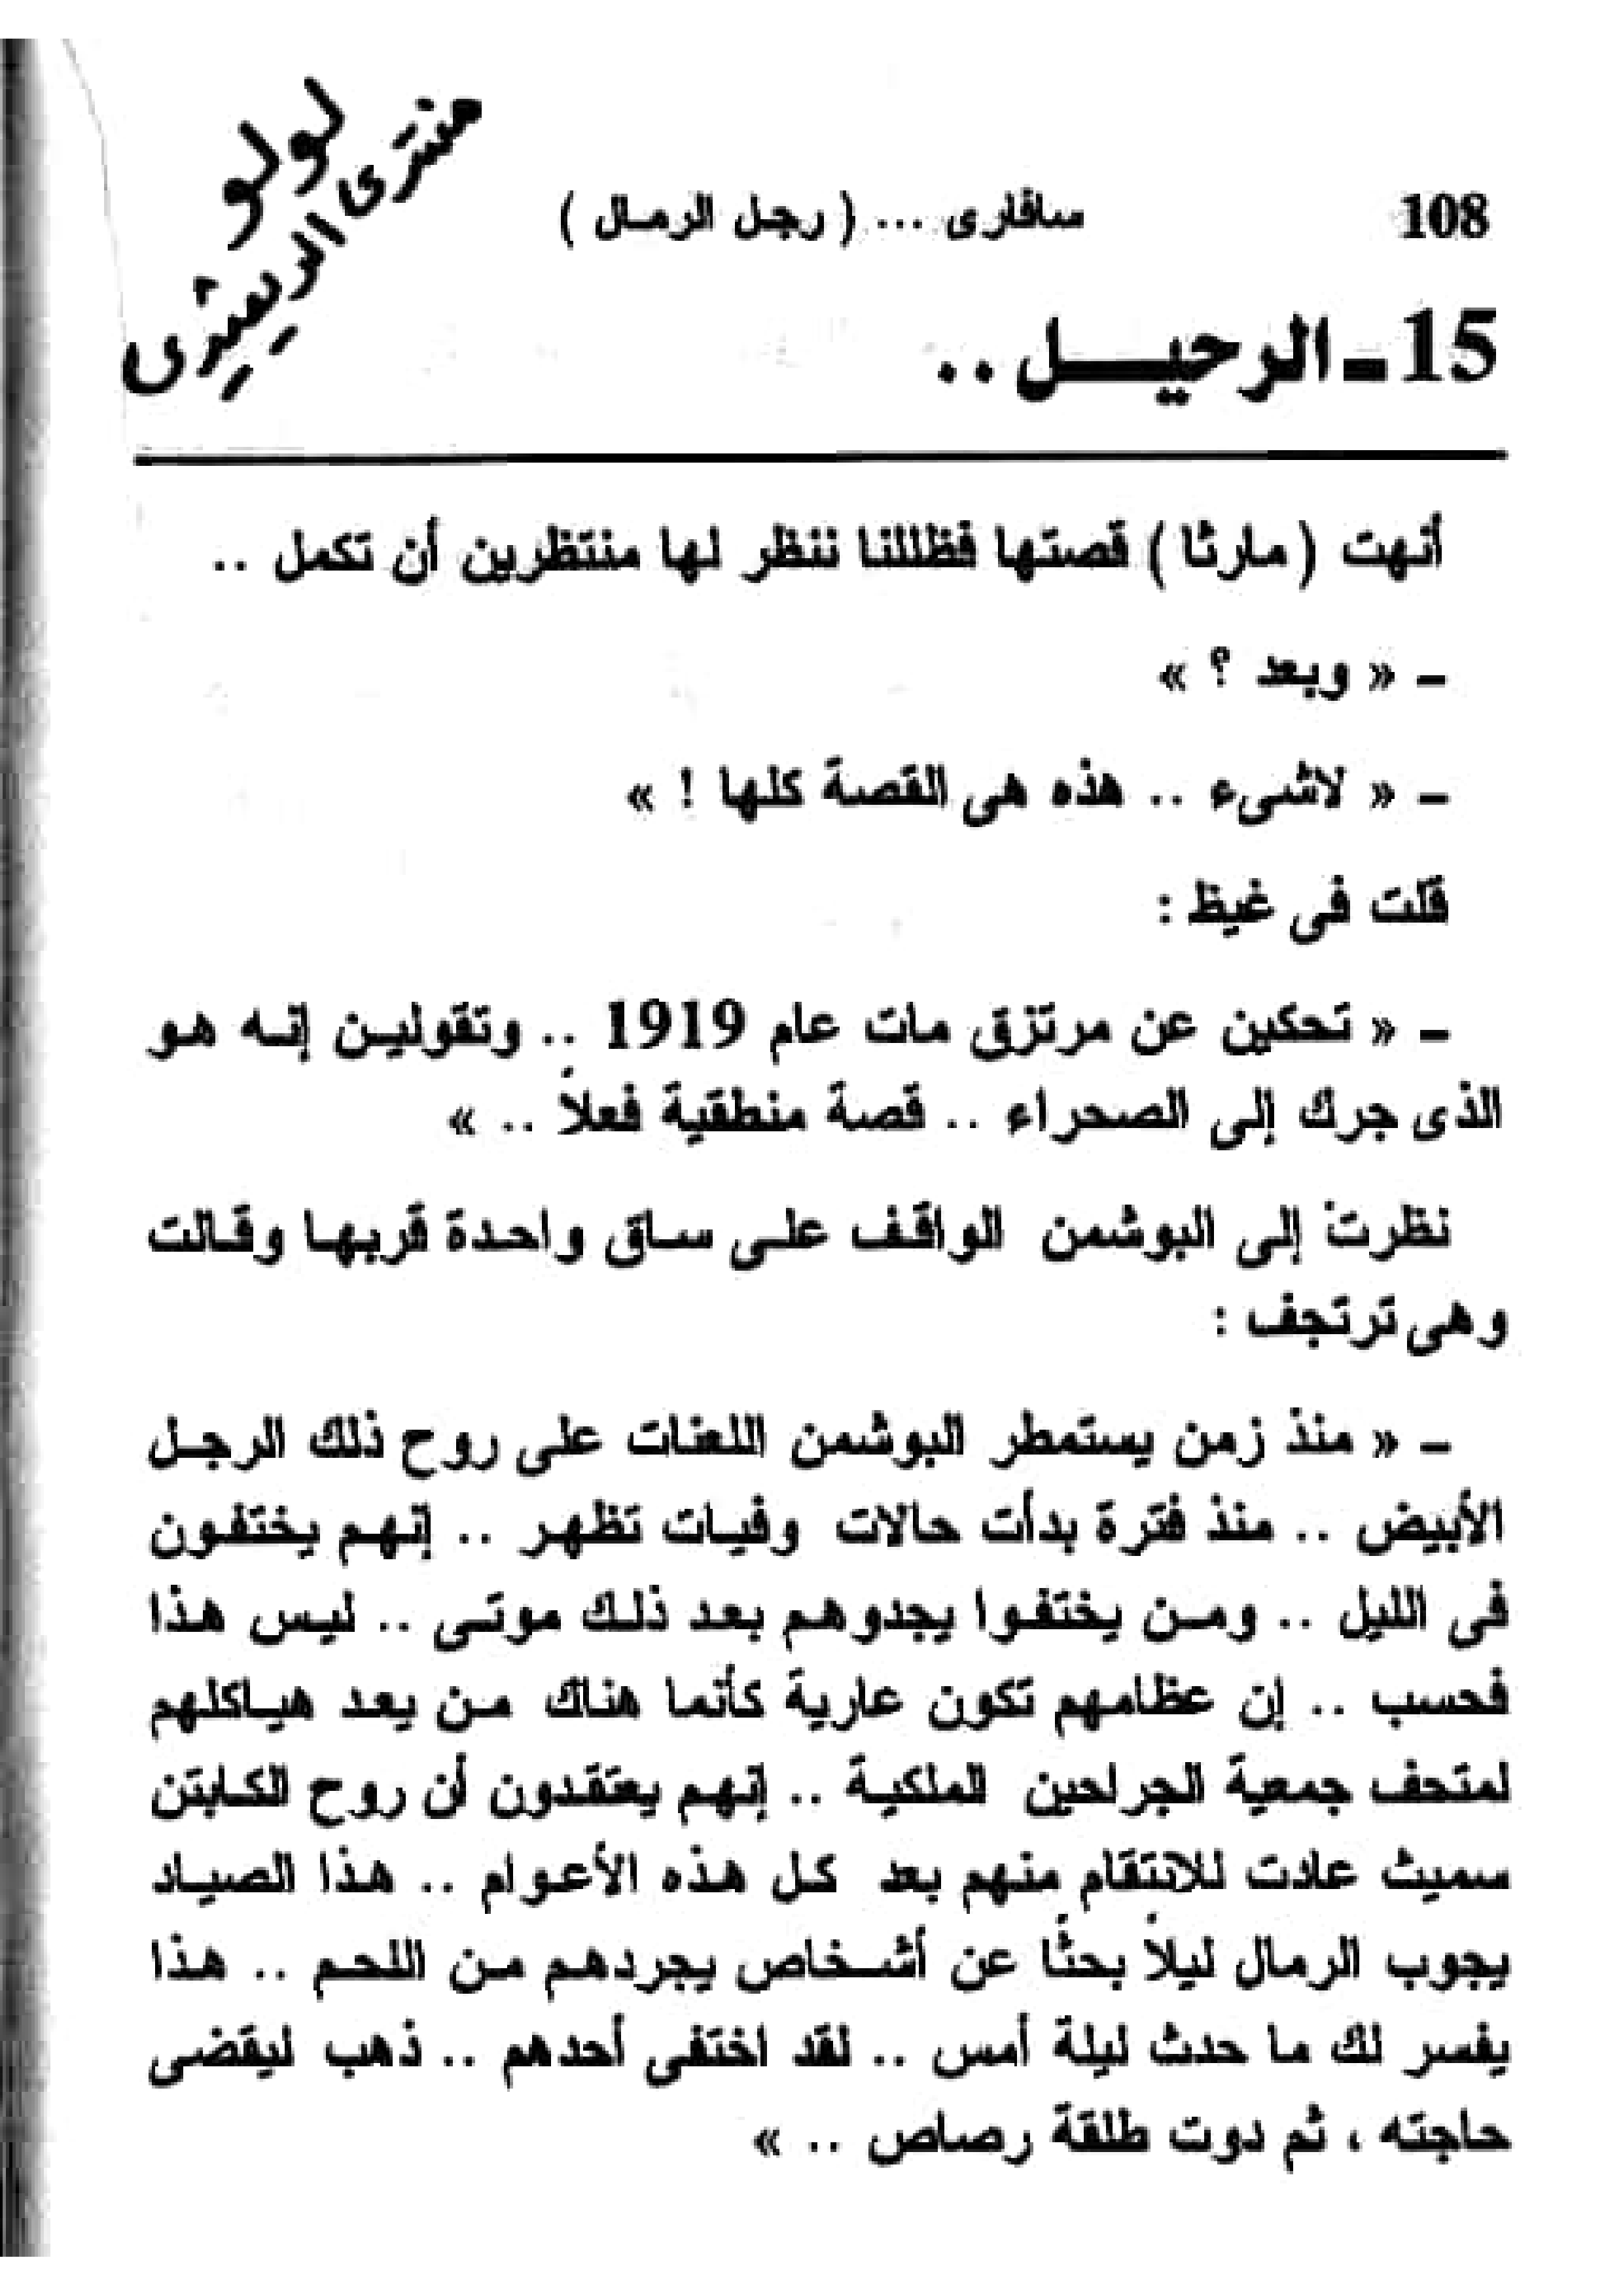 لولو
منتدى الديستري
108
سافارى ... ( رجل الرمال )
15 ـ الرحيل ..
أنهت ( مارثا ) قصتها فظللنا ننظر لها منتظرين أن تكمل ..
ـ « وبعد ؟ »
ـ « لاشىء .. هذه هى القصة كلها ! »
قلت فى غيظ :
ـ « تحكين عن مرتزق مات عام 1919 .. وتقولين إنه هو
الذى جرك إلى الصحراء .. قصة منطقية فعلاً .. »
نظرت إلى البوشمن الواقف على ساق واحدة قربها وقالت
وهى ترتجف :
ـ « منذ زمن يستمطر البوشمن اللعنات على روح ذلك الرجل
الأبيض .. منذ فترة بدأت حالات وفيات تظهر .. إنهم يختفون
فى الليل .. ومن يختفوا يجدوهم بعد ذلك موتى .. ليس هذا
فحسب .. إن عظامهم تكون عارية كأنما هناك من يعد هياكلهم
لمتحف جمعية الجراحين الملكية .. إنهم يعتقدون أن روح الكابتن
سميث عادت للانتقام منهم بعد كل هذه الأعوام .. هذا الصياد
يجوب الرمال ليلاً بحثًا عن أشخاص يجردهم من اللحم .. هذا
يفسر لك ما حدث ليلة أمس .. لقد اختفى أحدهم .. ذهب ليقضى
حاجته ، ثم دوت طلقة رصاص .. »